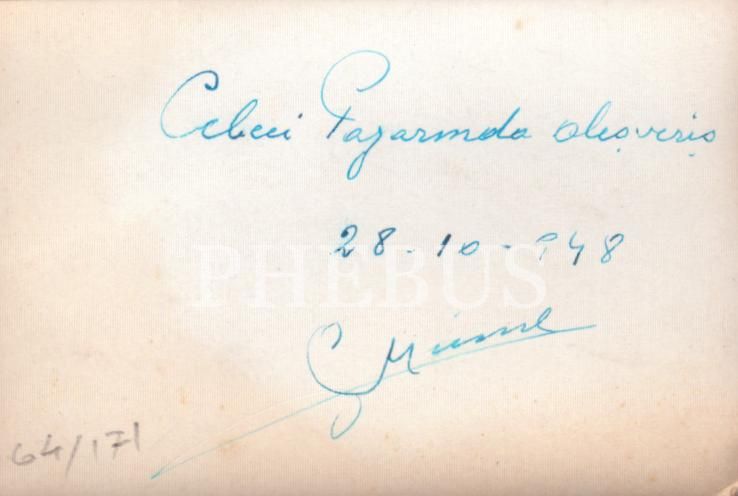 Cebeci Pazarında alışveriş
28-10-948
PHEBUS
64/171